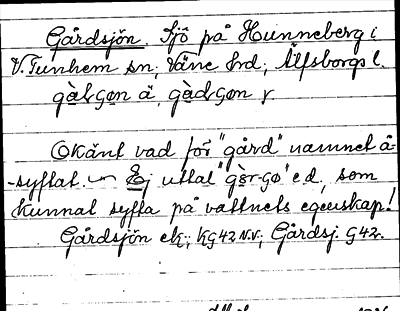 Gårdsjön. Sjö på Hunneberg i
V. Tunhem sn; Väne hrd; Älfsborgs l.
gàlsgøn ä, gàdsgøn y
Okänt vad för "gård" namnet å-
-syftat. Ej uttal "gòr-gø" e.d, som
kunnat syfta på vattnets egenskap!
Gårdsjön ek; Kg 42 n.v; Gårdsj. G42.